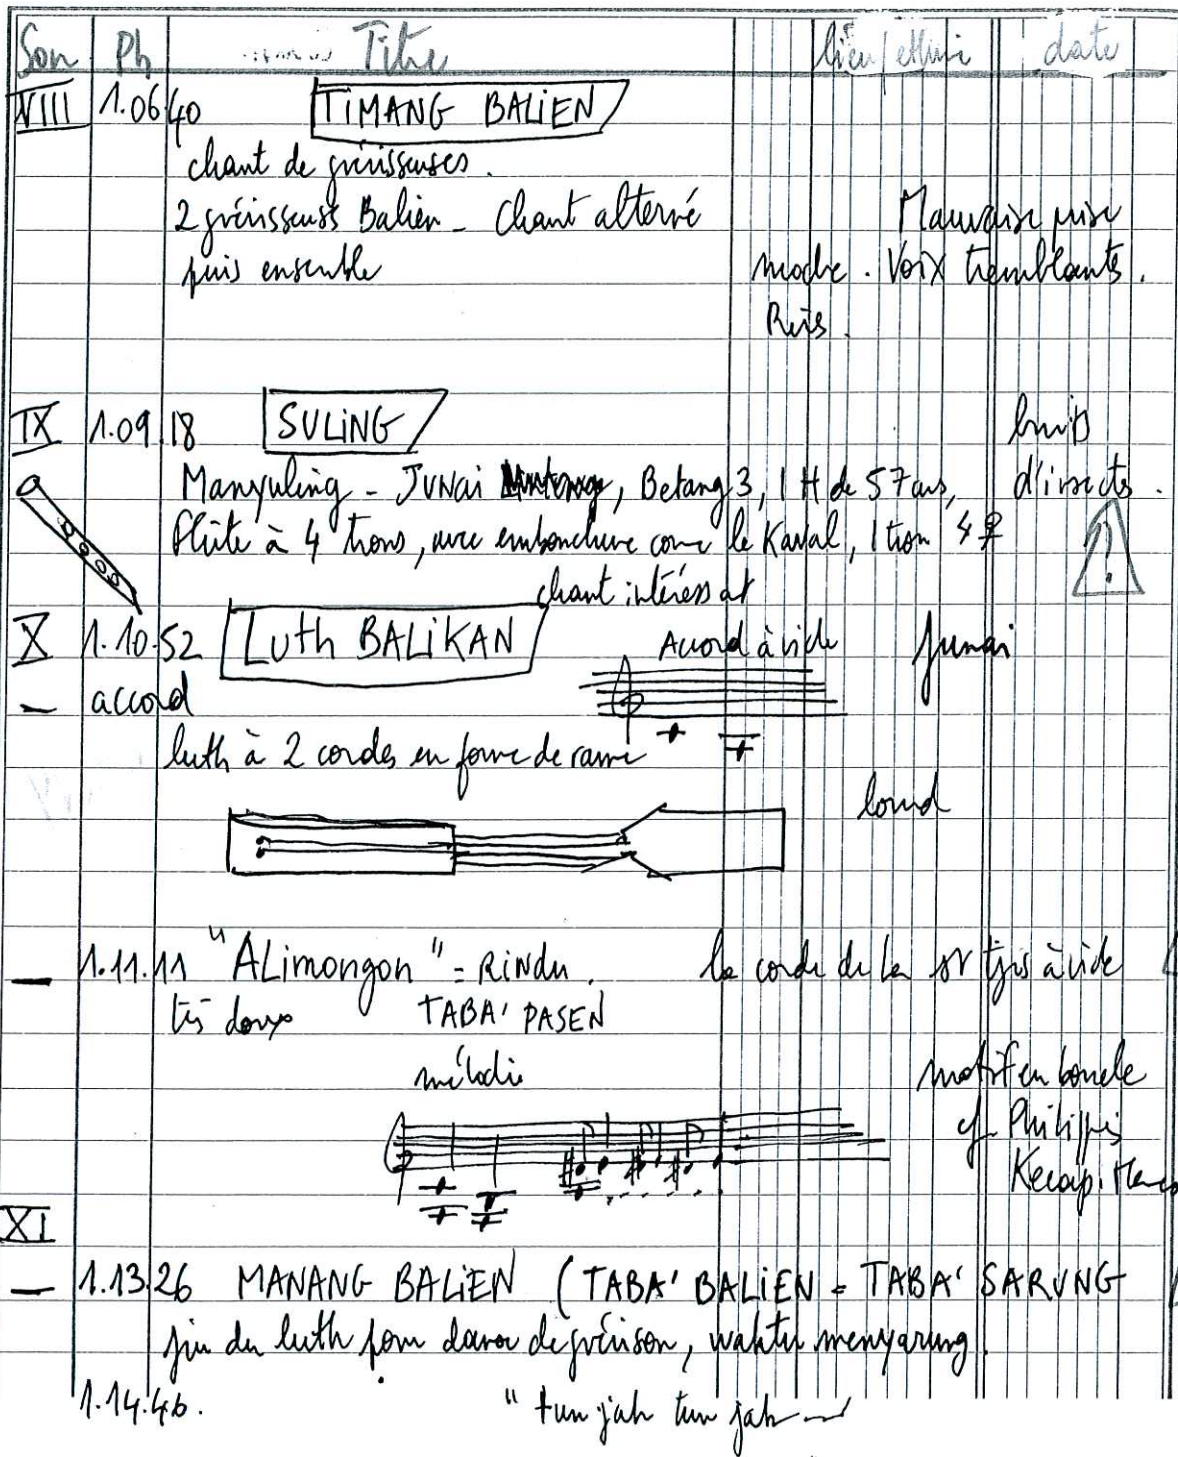 Son Ph Titre lieu/ethnie date
VIII 1.06.40 TIMANG BALIEN
chant de guérisseuses.
2 guérisseuses Balien - Chant alterné Mauvaise prise
puis ensemble Voix tremblants.
IX 1.09.18 SULING bruits
Manyuling - JUNAI, Betang 3, 1 H de 57 ans, d'insects.
flûte à 4 trous, avec embouchure come le Kaval, 1 trou
chant intéressat
X 1.10.52 Luth BALIKAN Accord à vide Junai
- accord
luth à 2 cordes en forme de rame
lourd
- 1.11.11 "ALimongon" = RiNdu. la corde de La st tjrs à vide
TABA' PASEN
mélodie motif en boucle
cf Philippines
Kecapi
XI
- 1.13.26 MANANG BALIEN (TABA' BALIEN = TABA' SARUNG
jeu du luth pour danse de guérison, waktu menyarung.
1.14.46. "tun jah tun jah